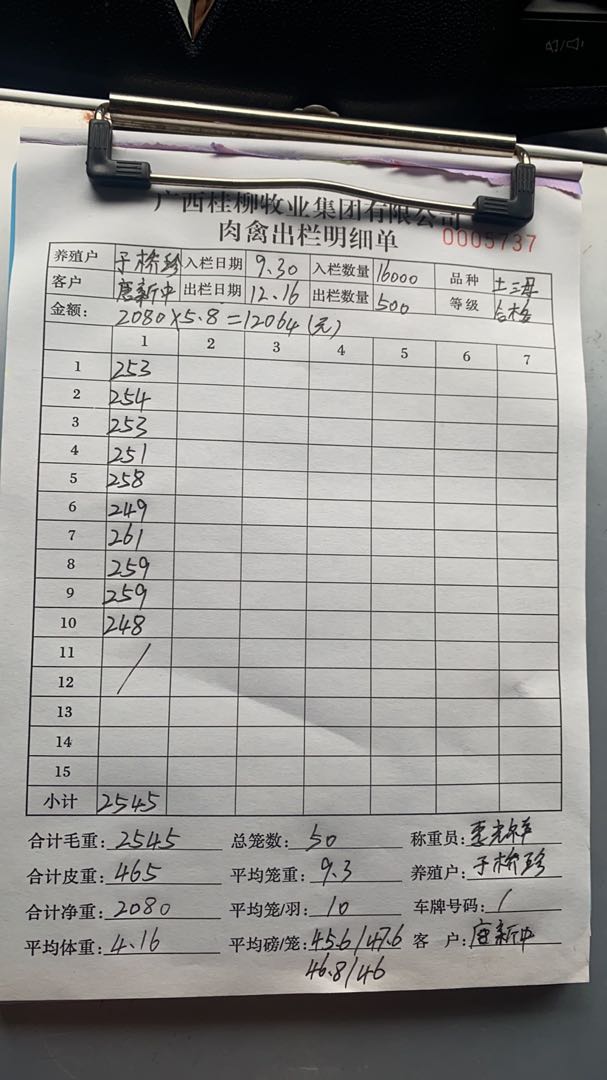 广西桂柳牧业集团有限公司
肉禽出栏明细单 0005737
养殖户 于桥珍 入栏日期 9.30 入栏数量 16000 品种 土三母
客户 唐新中 出栏日期 12.16 出栏数量 500 等级 合格
金额: 2080×5.8=12064(元)
1 2 3 4 5 6 7
1 253
2 254
3 253
4 251
5 258
6 249
7 261
8 259
9 259
10 248
11 /
12
13
14
15
小计 2545
合计毛重: 2545 总笼数: 50 称重员:
合计皮重: 465 平均笼重: 9.3 养殖户: 于桥珍
合计净重: 2080 平均笼/羽: 10 车牌号码: /
平均体重: 4.16 平均磅/笼: 45.6/47.6 客 户: 唐新中
46.8/46